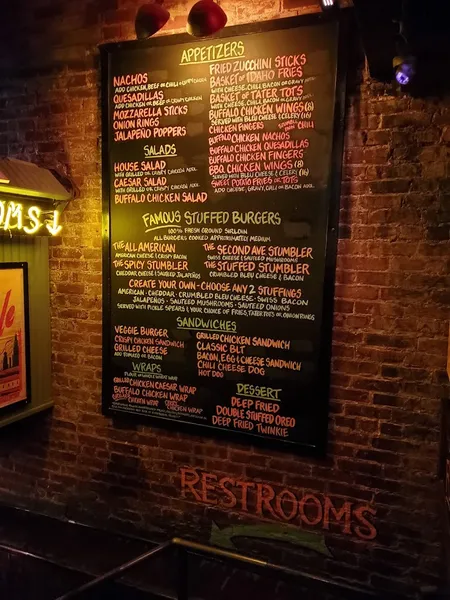 APPETIZERS
NACHOS
ADD CHICKEN, BEEF OR CHILI
QUESADILLAS
ADD CHICKEN OR BEEF OR CRISPY CHICKEN
MOZZARELLA STICKS
ONION RINGS
JALAPEÑO POPPERS
FRIED ZUCCHINI STICKS
BASKET OF IDAHO FRIES
WITH CHEESE, CHILI, BACON OR GRAVY ADD.
BASKET OF TATER TOTS
WITH CHEESE, CHILI, BACON OR GRAVY ADD.
BUFFALO CHICKEN WINGS (8)
SERVED WITH BLEU CHEESE & CELERY (16)
CHICKEN FINGERS
CHILI
BUFFALO CHICKEN NACHOS
BUFFALO CHICKEN QUESADILLAS
BUFFALO CHICKEN FINGERS
BBQ CHICKEN WINGS (8)
SERVED WITH BLEU CHEESE & CELERY (16)
SWEET POTATO FRIES OR TOTS
ADD CHEESE, GRAVY, CHILI OR BACON ADD.
SALADS
HOUSE SALAD
WITH GRILLED OR CRISPY CHICKEN ADD.
CAESAR SALAD
WITH GRILLED OR CRISPY CHICKEN ADD.
BUFFALO CHICKEN SALAD
FAMOUS STUFFED BURGERS
100% FRESH GROUND SIRLOIN
ALL BURGERS COOKED APPROXIMATELY MEDIUM
THE ALL AMERICAN
AMERICAN CHEESE & CRISPY BACON
THE SPICY STUMBLER
CHEDDAR CHEESE & SAUTEED JALAPEÑOS
THE SECOND AVE STUMBLER
SWISS CHEESE & SAUTEED MUSHROOMS
THE STUFFED STUMBLER
CRUMBLED BLEU CHEESE & BACON
CREATE YOUR OWN - CHOOSE ANY 2 STUFFINGS
AMERICAN - CHEDDAR - CRUMBLED BLEU CHEESE - SWISS BACON
JALAPEÑOS - SAUTEED MUSHROOMS - SAUTEED ONIONS
SERVED WITH PICKLE SPEARS & YOUR CHOICE OF FRIES, TATER TOTS OR ONION RINGS
SANDWICHES
VEGGIE BURGER
CRISPY CHICKEN SANDWICH
GRILLED CHEESE
ADD TOMATO OR BACON
GRILLED CHICKEN SANDWICH
CLASSIC BLT
BACON, EGG & CHEESE SANDWICH
CHILI CHEESE DOG
HOT DOG
WRAPS
PLAIN OR WHOLE WHEAT WRAP
GRILLED CHICKEN CAESAR WRAP
BUFFALO CHICKEN WRAP
GRILLED CHICKEN WRAP
CRISPY CHICKEN WRAP
DESSERT
DEEP FRIED
DOUBLE STUFFED OREO
DEEP FRIED TWINKIE
OMS
RESTROOMS